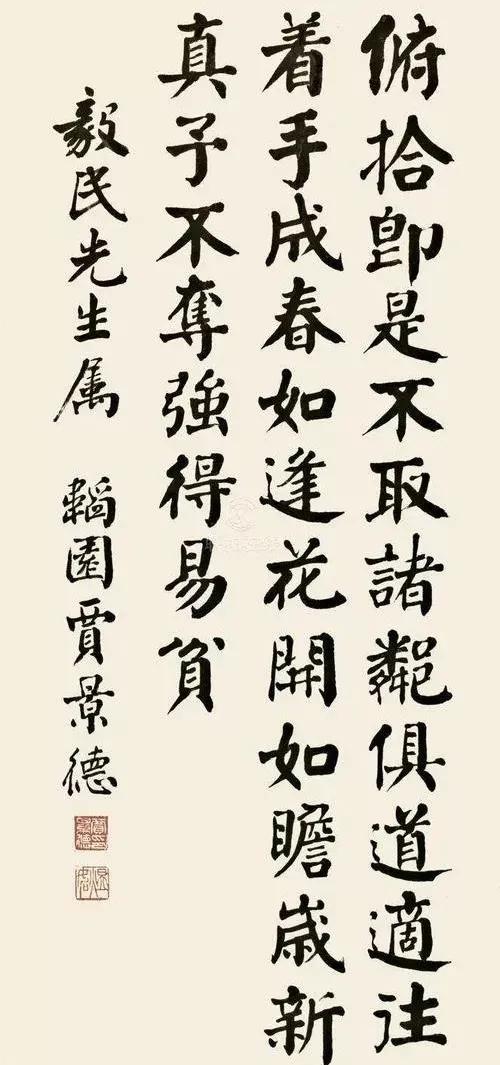 俯拾即是不取諸鄰俱道適往
着手成春如逢花開如瞻歲新
真予不奪強得易貧
毅民先生属 韜園賈景德
賈景德印